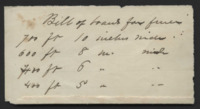 Bill of boards for fence
700 ft 10 inches wide
600 ft 8 in. wide
700 ft 6 " "
400 ft 5 " "